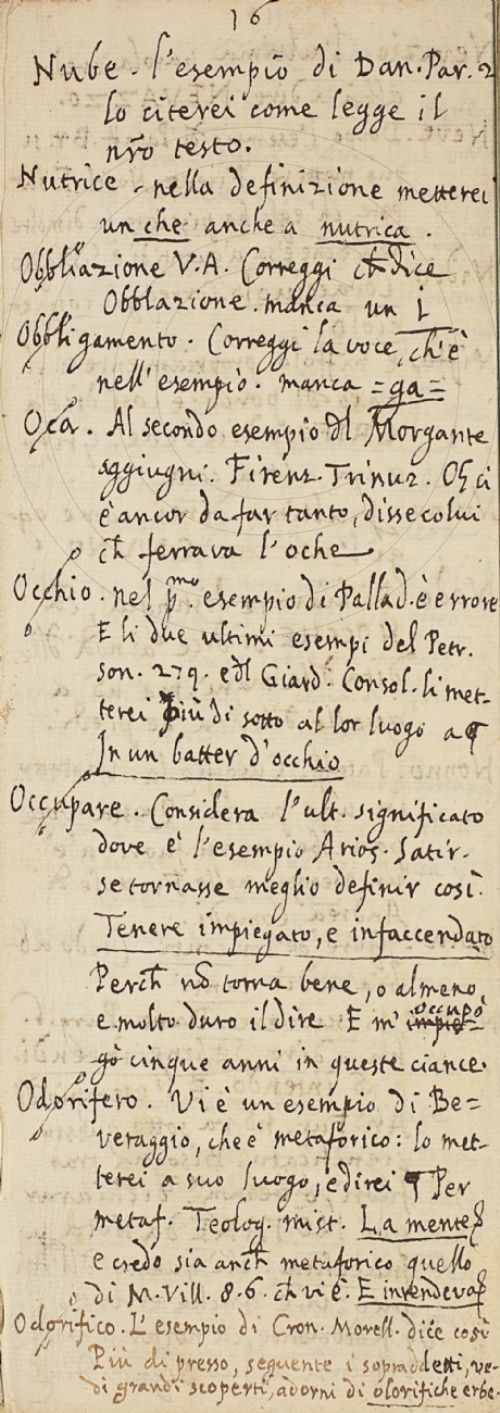 16
Nube. l'esempio di Dan. Par. 2
lo citerei come legge il
nr̃o testo.
Nutrice. nella definizione metterei
un che anche a nutrica.
Obbliazione V.A. Correggi ch̃ dice
Obblazione. manca un i
Obbligamento. Correggi la voce, ch'è
nell'esempio. manca =ga=
Oca. Al secondo esempio dl Morgante
aggiugni. Firenz. Trinuz. Oh ci
è ancor da far tanto, disse colui
ch̃ ferrava l'oche
Occhio. nel pmo. esempio di Pallad. è errore
E li due ultimi esempi del Petr.
son. 279. e dl Giard. Consol. li met-
terei più di sotto al lor luogo a ¶
In un batter d'occhio
Occupare. Considera l'ult. significato
dove è l'esempio Arios. Satir.
se tornasse meglio definir così.
Tenere impiegato, e infaccendato
Perch̃ nõ torna bene, o almeno
e molto duro il dire E m' impie- occupò
gò cinque anni in queste ciance.
Odorifero. Vi è un esempio di Be=
veraggio, che è metaforico: lo met-
terei a suo luogo, e direi ¶ Per
metaf. Teolog. mist. La mente
e credo sia anch̃ metaforico quello
di M. Vill. 8. 6. ch̃ vi è. E intendeva
Odorifico. L'esempio di Cron. Morell. dice così
Più di presso, seguente i sopraddetti, ve-
di grandi scoperti, adorni di olorifiche erbe.